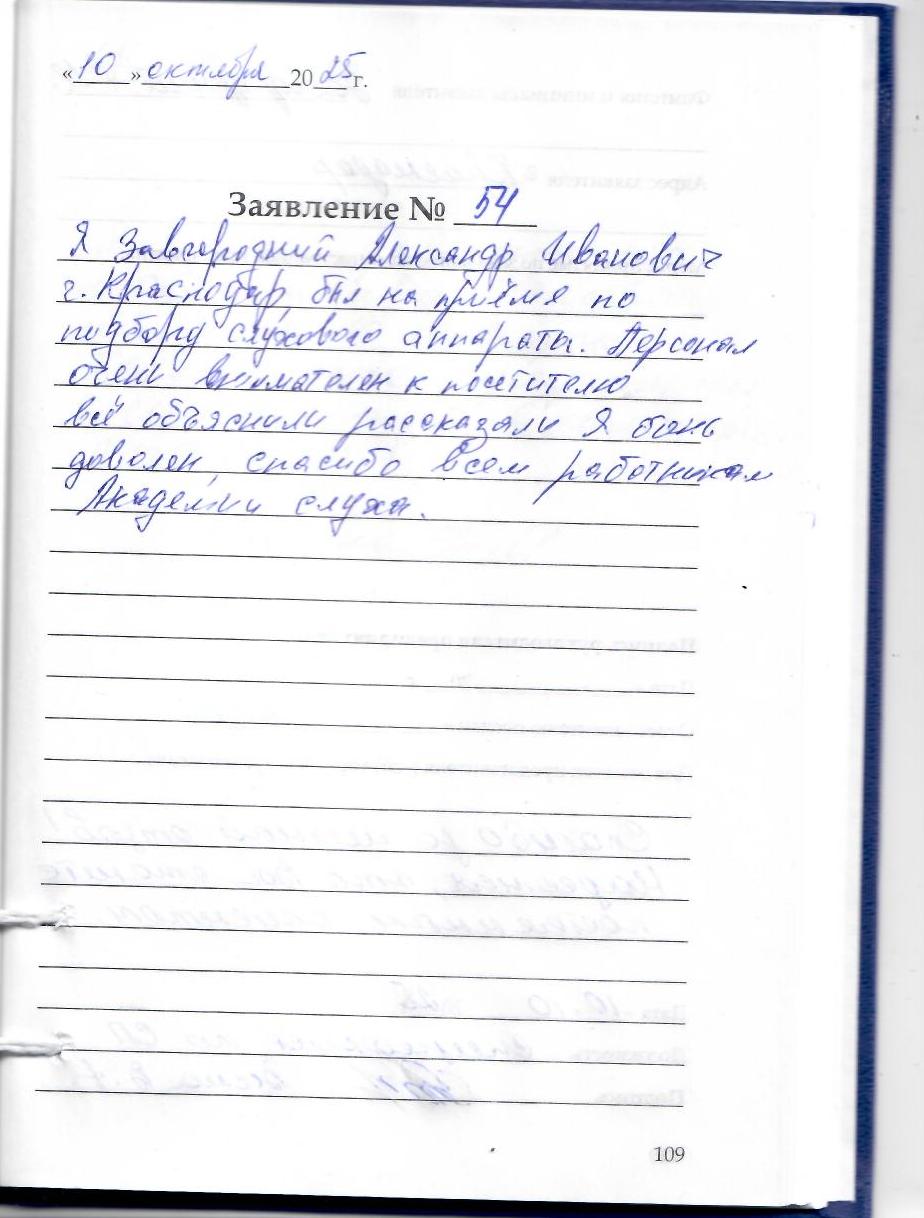 «10» октября 2025 г.
Заявление № 54
Я Завгородний Александр Иванович
г. Краснодар, был на приёме по
подбору слухового аппараты. Персонал
очень внимателен к посетителю
всё объяснили рассказали Я
доволен, спасибо всем работникам
Академии слуха.
109